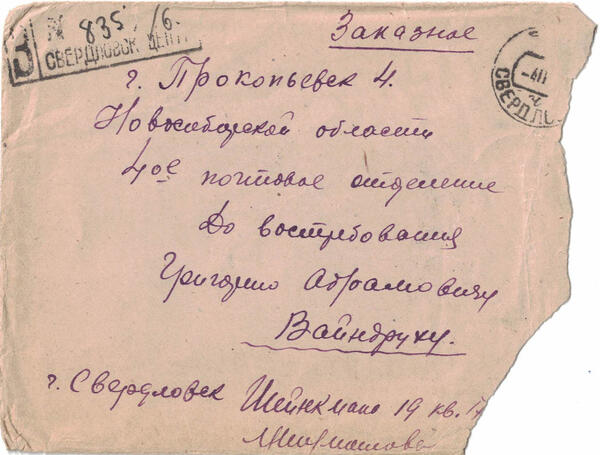 З № 835/16.
СВЕРДЛОВСК ЦЕНТ
Заказное
СВЕРДЛО
г. Прокопьевск 4.
Новосибирской области
4ое почтовое отделение
До востребования
Григорию Абрамовичу
Вайндруху.
г. Свердловск Шейнкмана 19 кв.